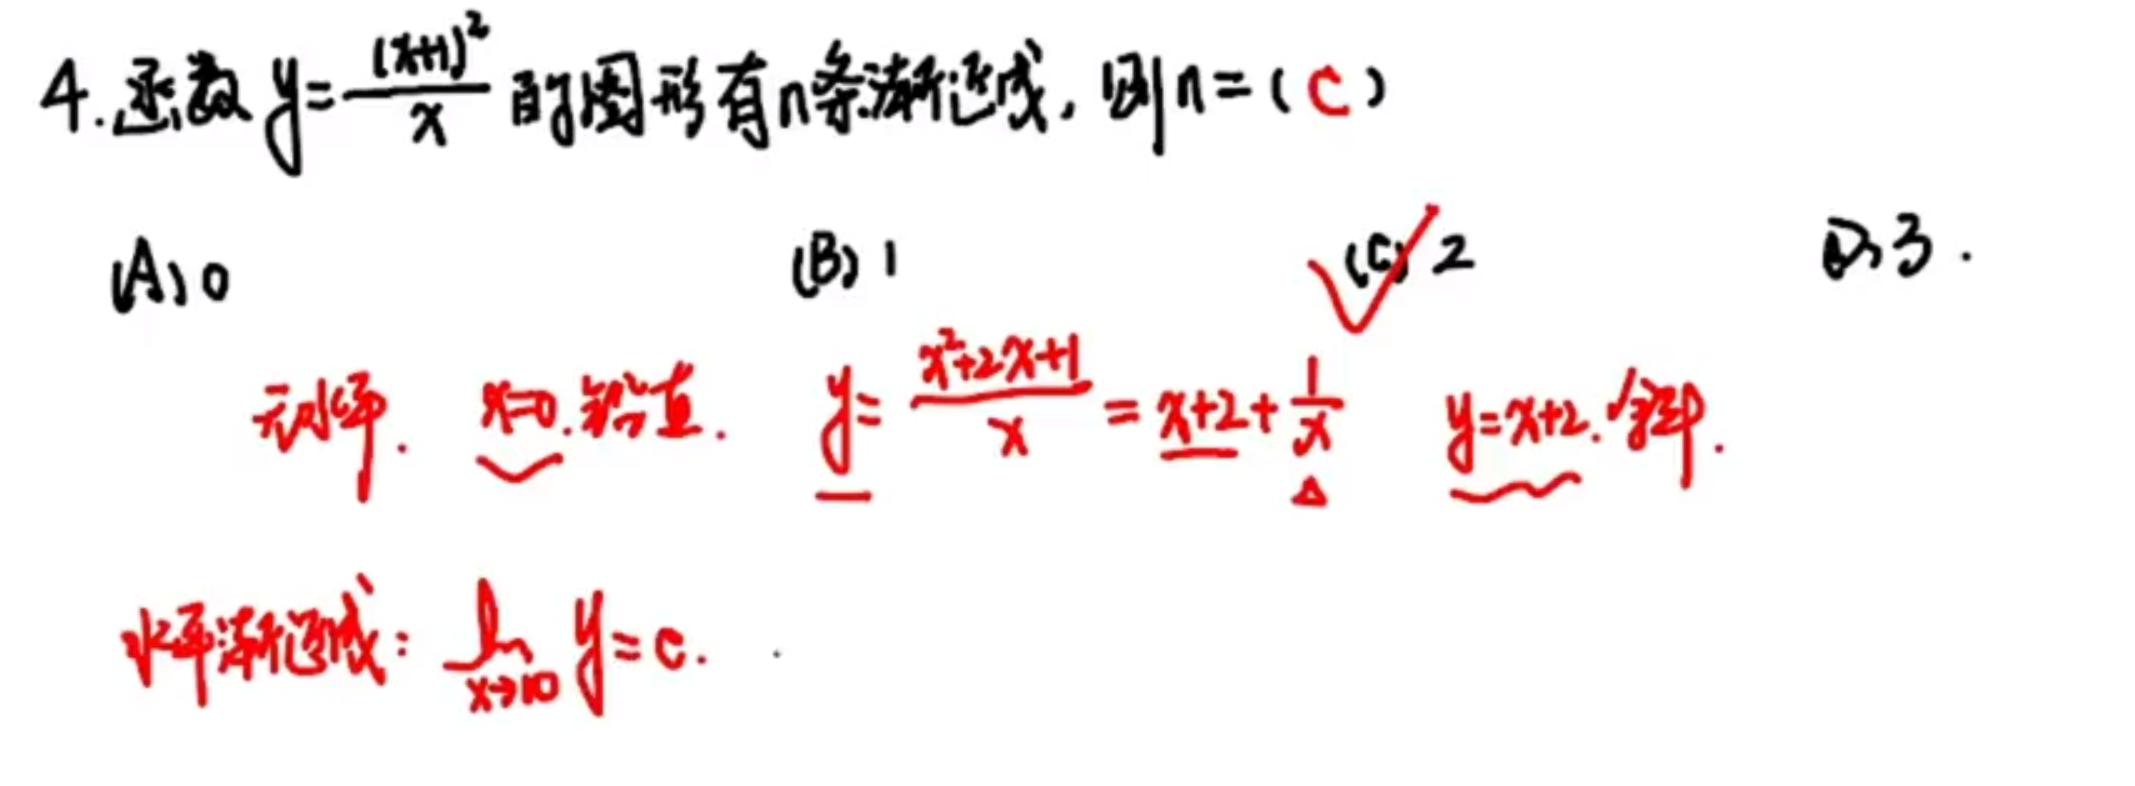 4.函数 y=(x+1)²/x 的图形有n条渐近线,则n=(C)
(A) 0 (B) 1 (C) 2 (D) 3.
无水平. x=0.铅直. y=(x²+2x+1)/x = x+2+1/x y=x+2.斜.
水平渐近线: lim x→∞ y=c.